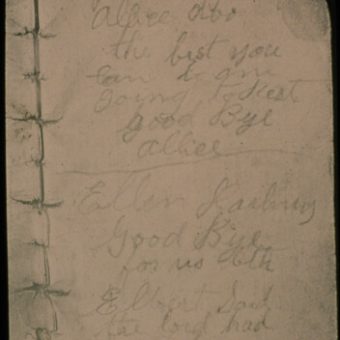 allice do
the best you
can I am
going to Rest
good Bye
allice
Ellen darling
Good Bye
for us both
Elbert Said
the lord had